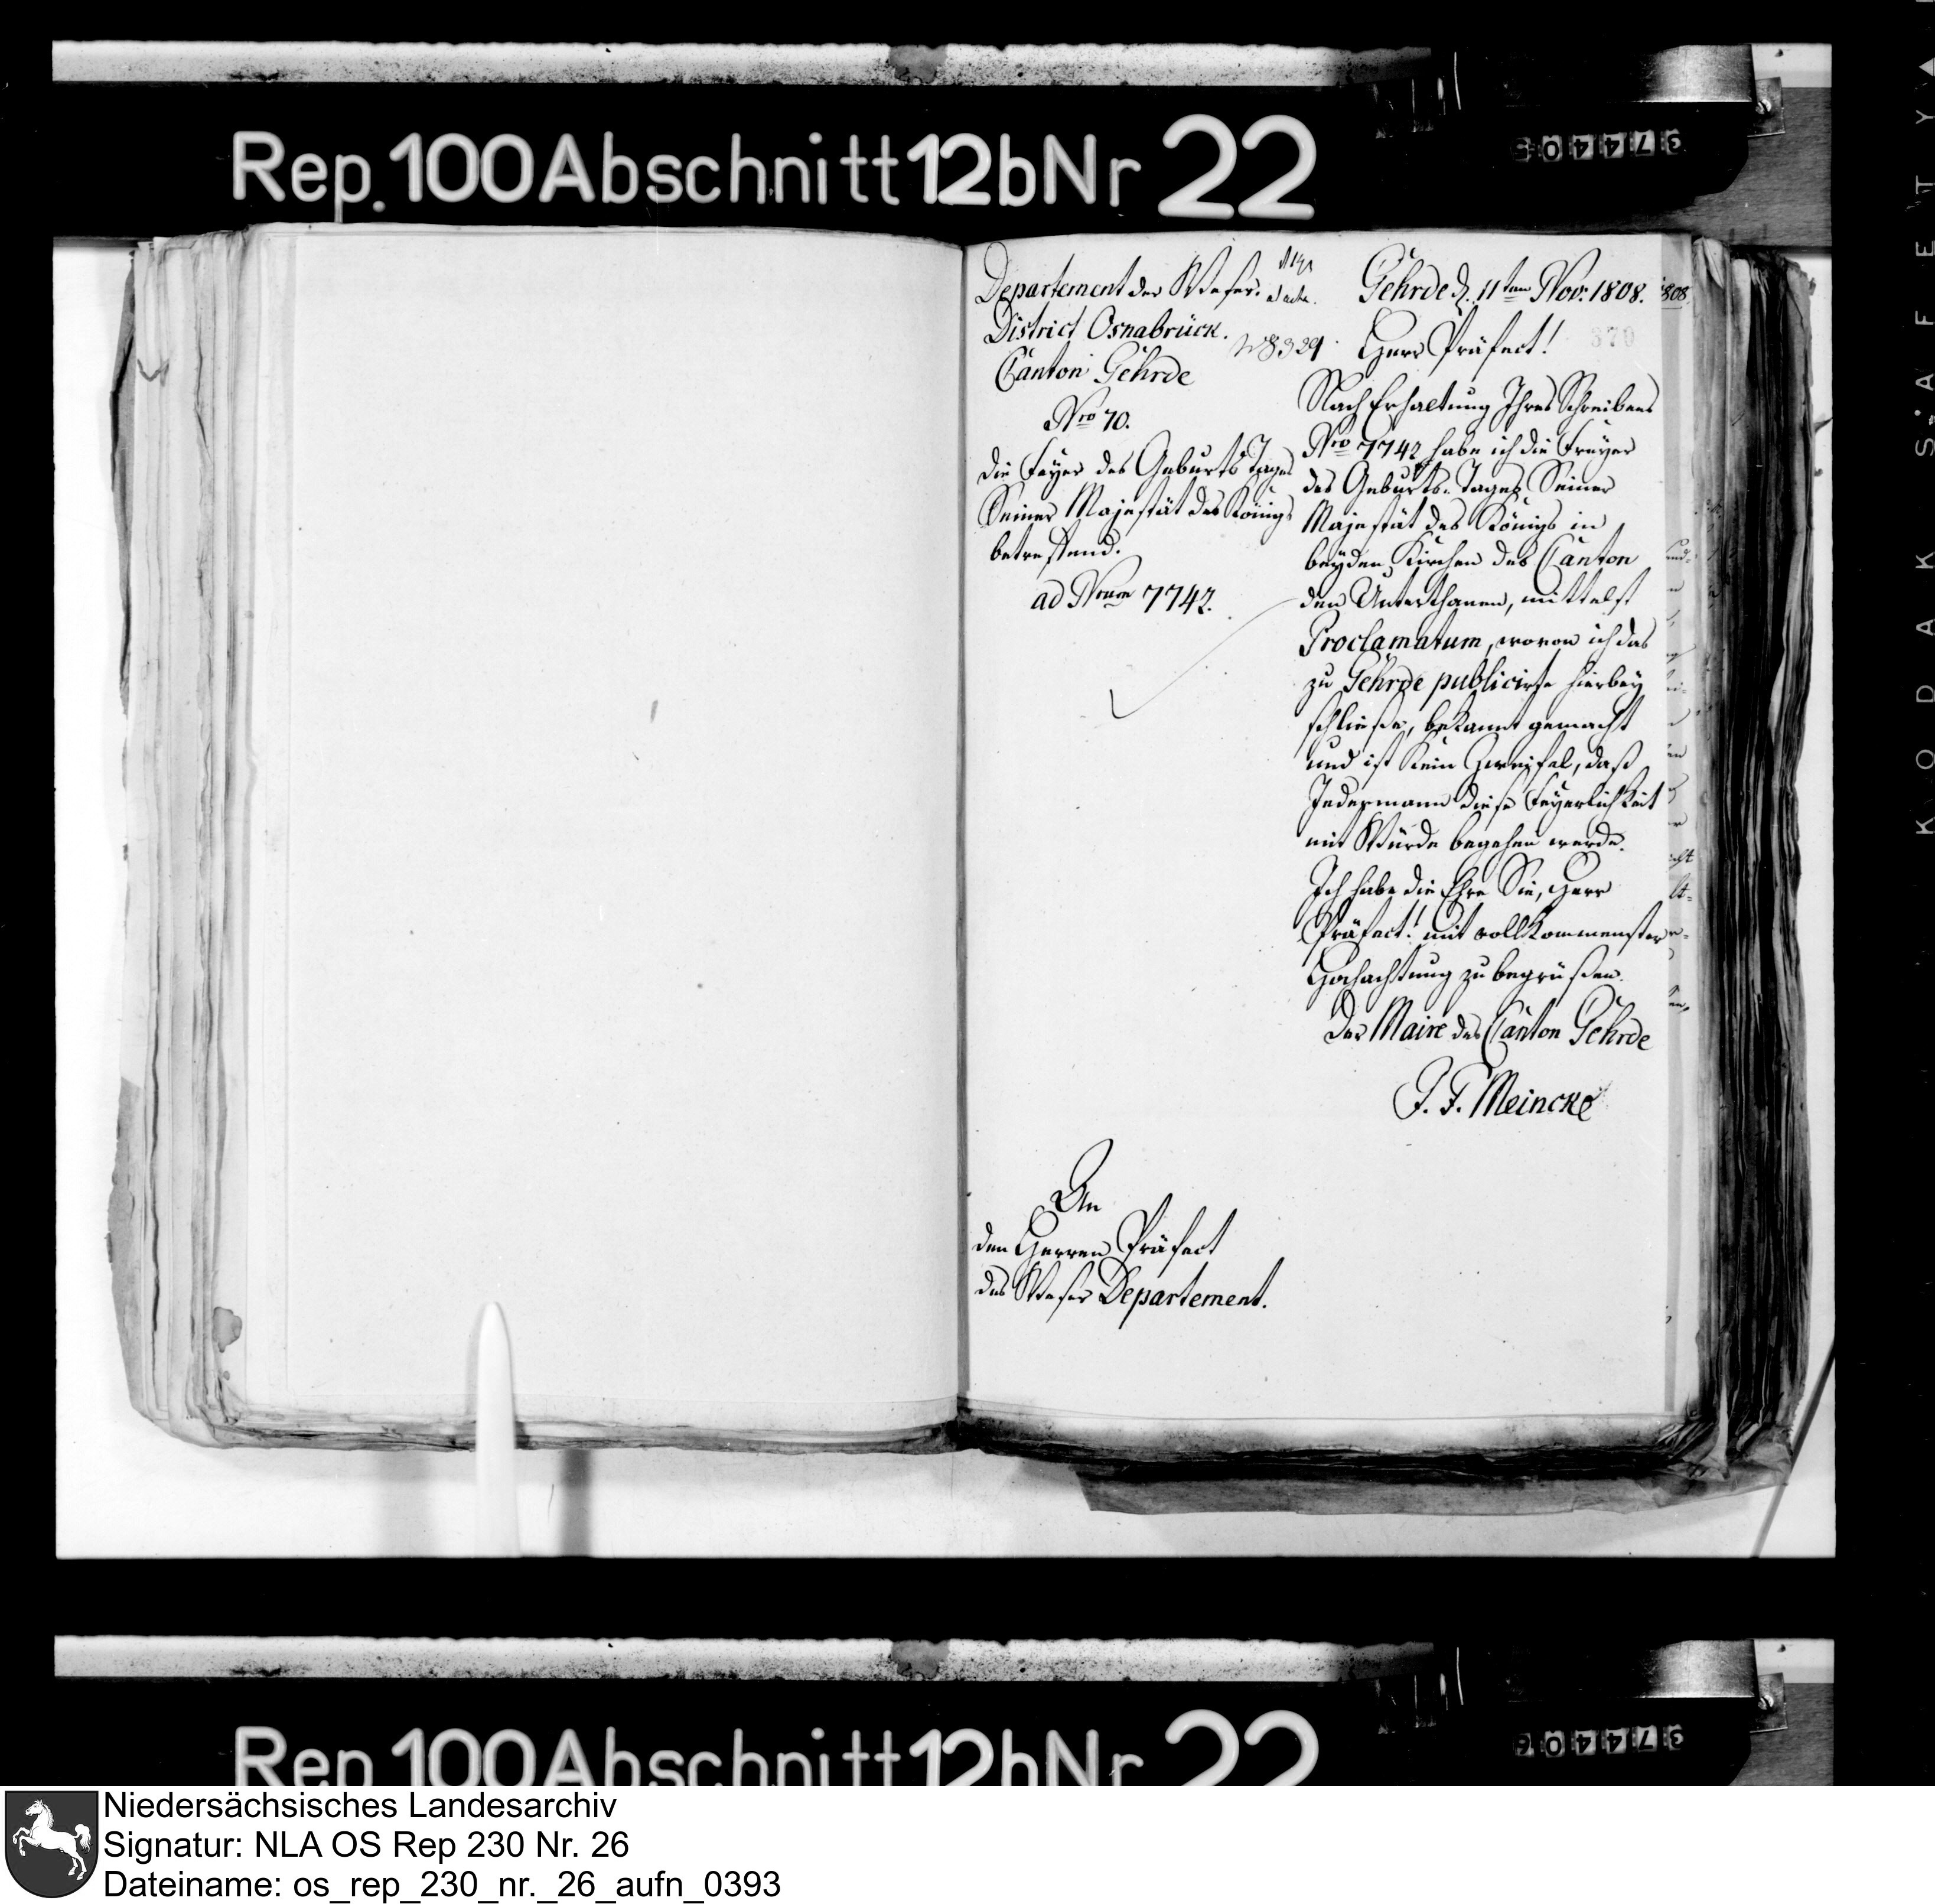 Rep. 100 Abschnitt 12b Nr 22
37440
Departement der Weser.
District Osnabrück.
Canton Gehrde
Nro 70.
die Feyer des Geburts Tages
Seiner Majestät des Königs
betreffend.
ad Nrum 7742.
N 8329
Gehrde d. 11ten Nov. 1808.
370
Herr Präfect!
Nach Erhaltung Ihres Schreibens
Nro 7742 habe ich die Freyer
des Geburts-Tages Seiner
Majestät des Königs in
beyden Kirchen des Canton
den Unterthanen, mittelst
Proclamatum, wovon ich das
zu Gehrde publicirte hierbey
schließe, bekannt gemacht
und ist kein Zweifel, daß
Jedermann diese Feyerlichkeit
mit Würde begehen werde.
Ich habe die Ehre Sie, Herr
Präfect! mit vollkommenster
Hochachtung zu begrüßen.
Der Maire des Canton Gehrde
J. F. Meincke
An
den Herren Präfect
des Weser Departement.
KODAK SAFETY
Rep. 100 Abschnitt 12b Nr 22
Niedersächsisches Landesarchiv
Signatur: NLA OS Rep 230 Nr. 26
Dateiname: os_rep_230_nr._26_aufn_0393